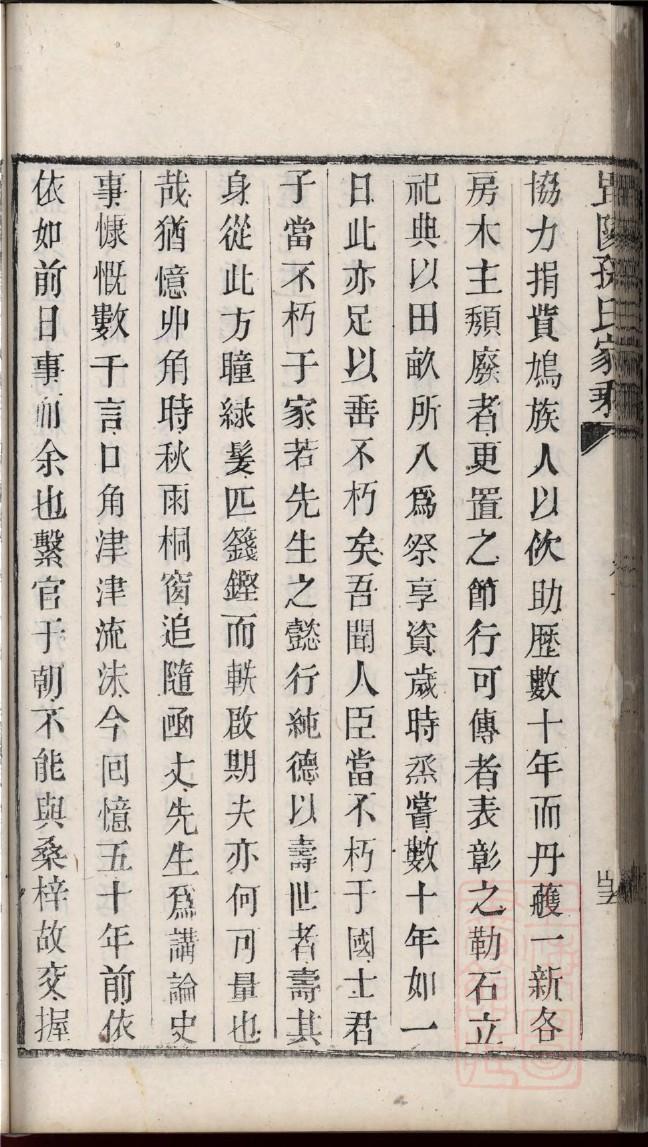 孫氏家乘
協力捐貲鳩族人以佽助歷數十年而丹雘一新各
房木主頹廢者更置之節行可傳者表彰之勒石立
祀典以田畝所入爲祭享資歲時烝嘗數十年如一
日此亦足以垂不朽矣吾聞人臣當不朽于國士君
子當不朽于家若先生之懿行純德以壽世者壽其
身從此方瞳綠髮匹籛鏗而軼啟期夫亦何可量也
哉猶憶丱角時秋雨桐窗追隨函丈先生爲講論史
事慷慨數千言口角津津流沫今回憶五十年前依
依如前日事而余也繫官于朝不能與桑梓故交握